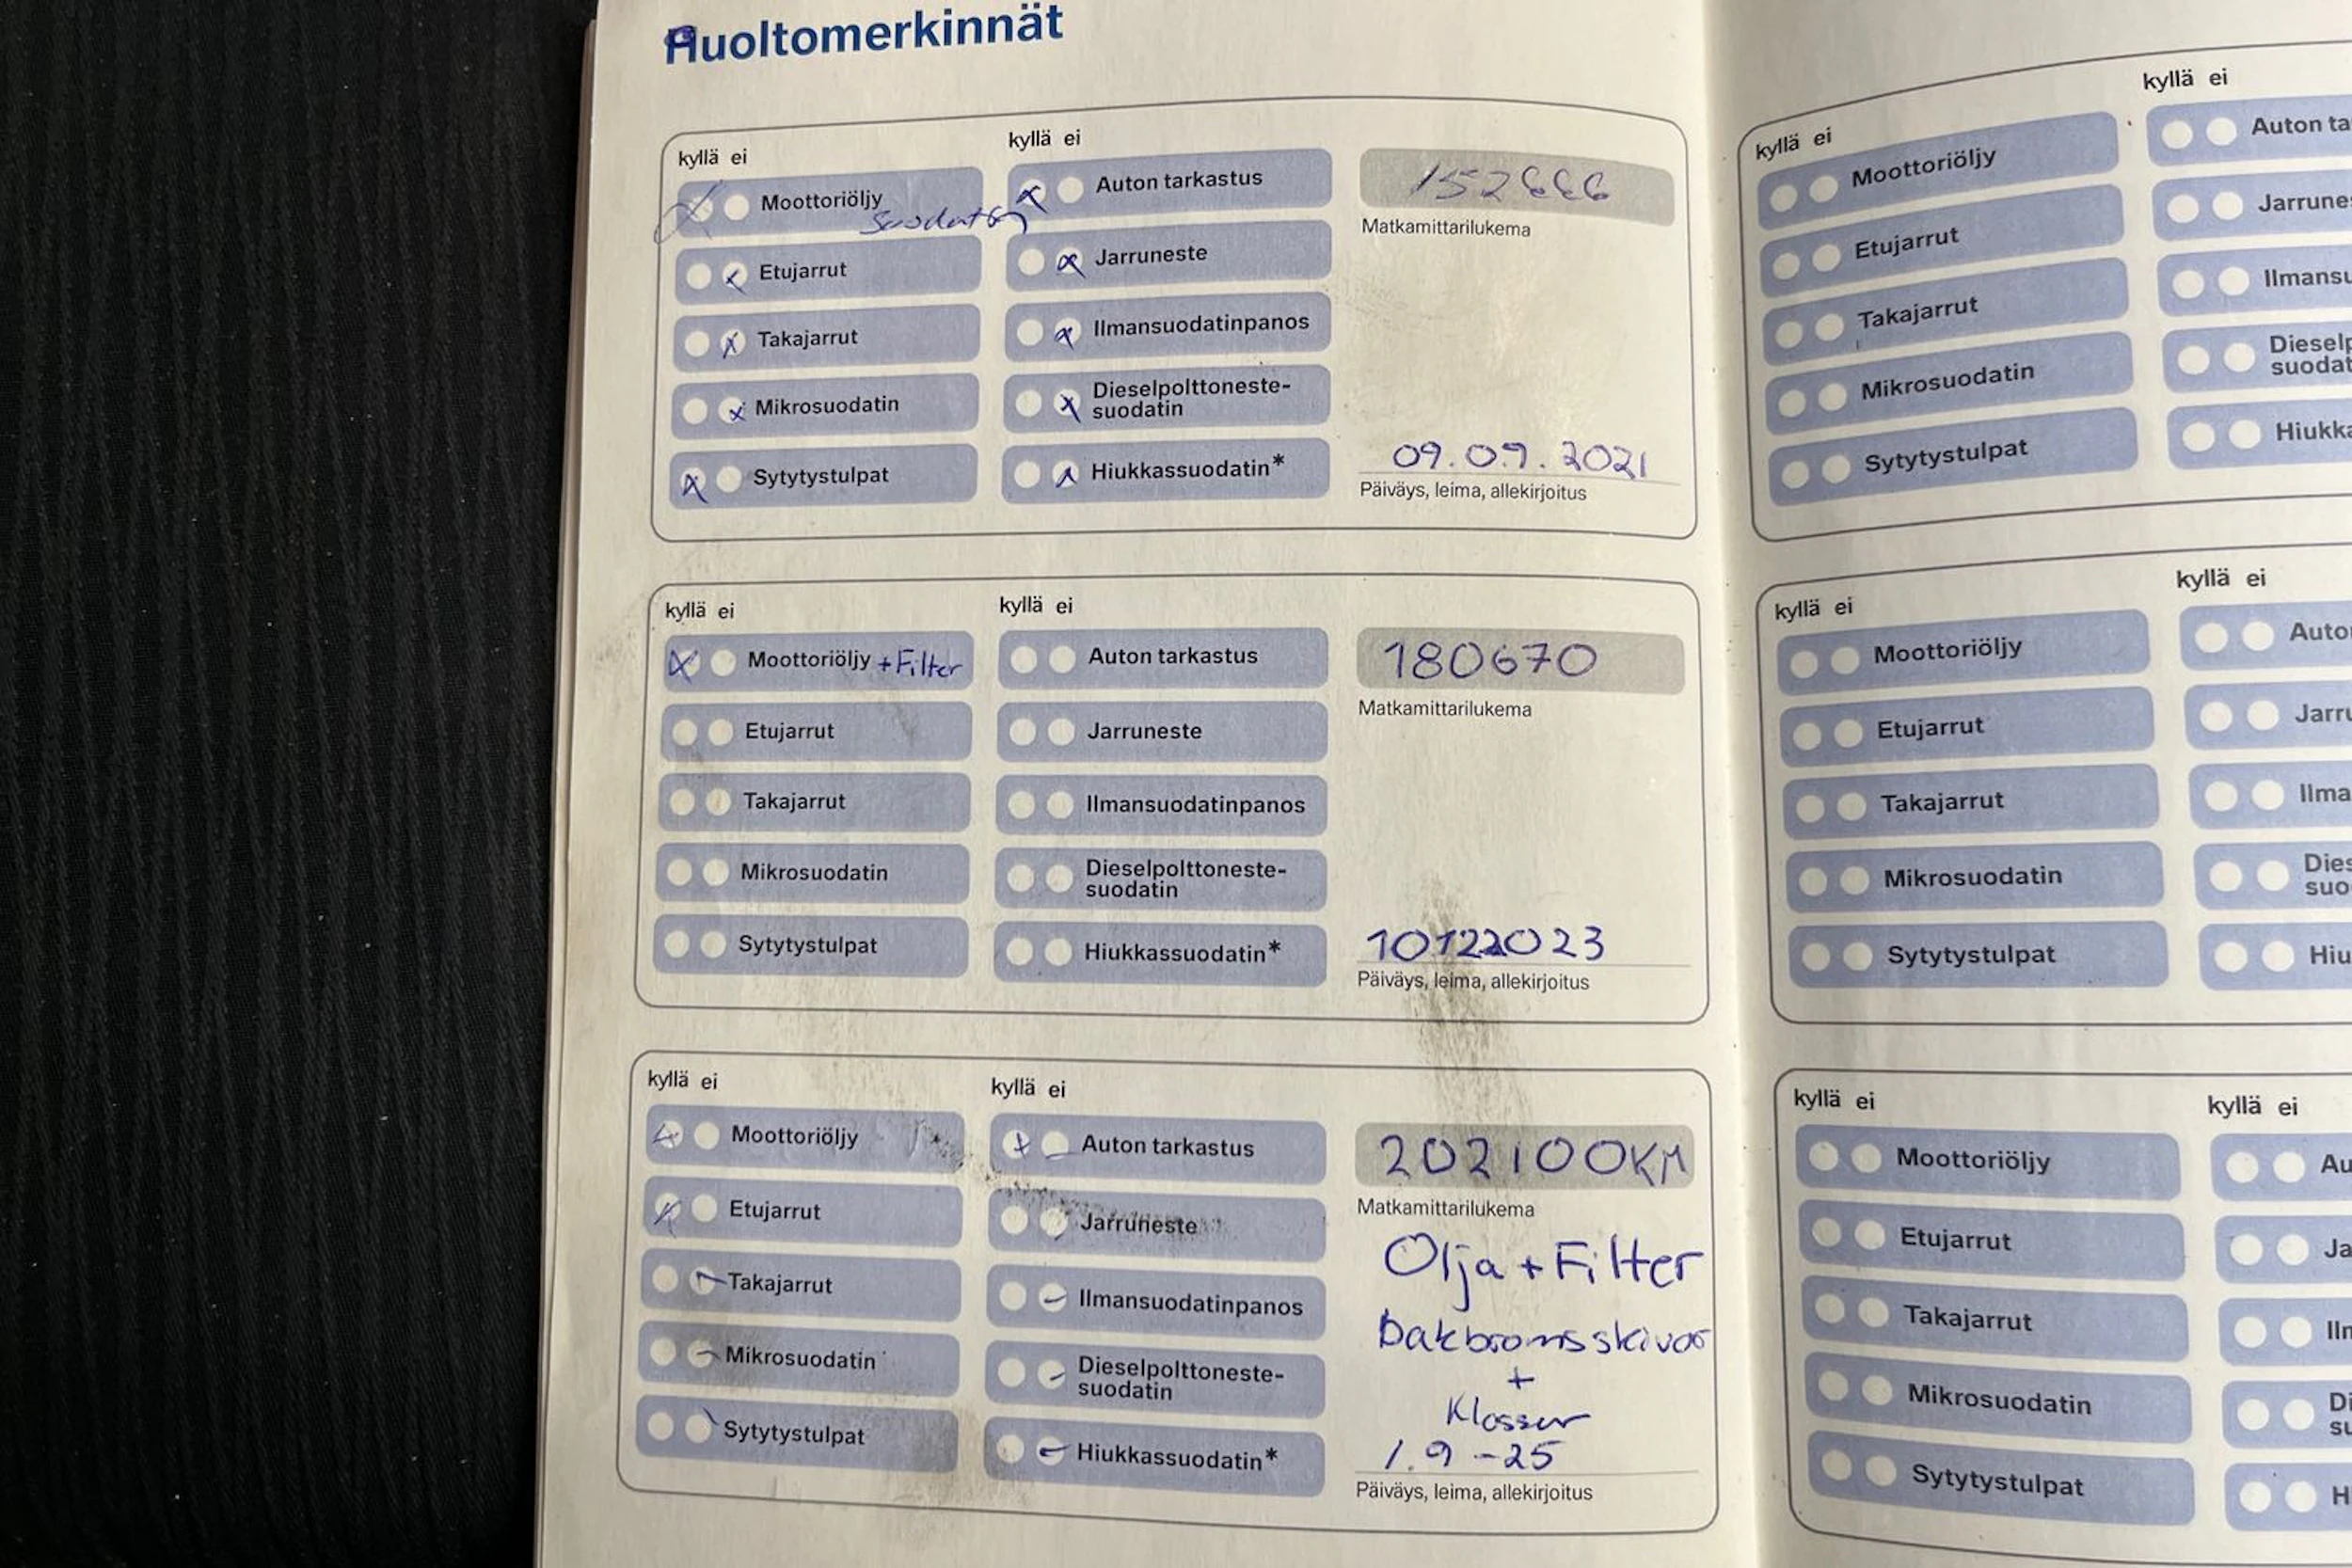 Huoltomerkinnät
kyllä ei
kyllä ei
Moottoriöljy
Auton tarkastus
152666
Matkamittarilukema
Etujarrut
Jarruneste
Takajarrut
Ilmansuodatinpanos
Mikrosuodatin
Dieselpolttoneste-
suodatin
Sytytystulpat
Hiukkassuodatin*
09.09.2021
Päiväys, leima, allekirjoitus
kyllä ei
kyllä ei
Moottoriöljy +Filter
Auton tarkastus
180670
Matkamittarilukema
Etujarrut
Jarruneste
Takajarrut
Ilmansuodatinpanos
Mikrosuodatin
Dieselpolttoneste-
suodatin
Sytytystulpat
Hiukkassuodatin*
10122023
Päiväys, leima, allekirjoitus
kyllä ei
kyllä ei
Moottoriöljy
Auton tarkastus
202100KM
Matkamittarilukema
Etujarrut
Jarruneste
Olja + Filter
Takajarrut
Ilmansuodatinpanos
Bakbromsskivor
+
Mikrosuodatin
Dieselpolttoneste-
suodatin
Klossur
Sytytystulpat
Hiukkassuodatin*
1.9-25
Päiväys, leima, allekirjoitus
kyllä ei
kyllä ei
Moottoriöljy
Auton ta
Etujarrut
Jarrune
Takajarrut
Ilmansu
Mikrosuodatin
Dieselp
suodat
Sytytystulpat
Hiukka
kyllä ei
kyllä ei
Moottoriöljy
Auto
Etujarrut
Jarru
Takajarrut
Ilma
Mikrosuodatin
Dies
suo
Sytytystulpat
Hiu
kyllä ei
kyllä ei
Moottoriöljy
Au
Etujarrut
Ja
Takajarrut
Iln
Mikrosuodatin
Di
su
Sytytystulpat
H